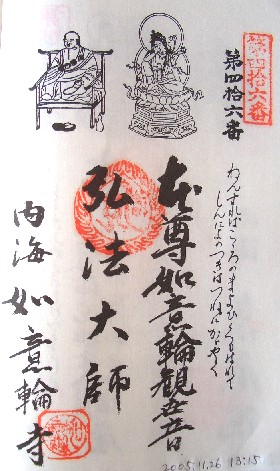 第四拾六番
第四拾六番
ねんずればこゝろのまよひくもはれて
しんによのつきはつねにかゞやく
本尊如意輪観世音
弘法大師
内海如意輪寺
2005.11.26 13:15